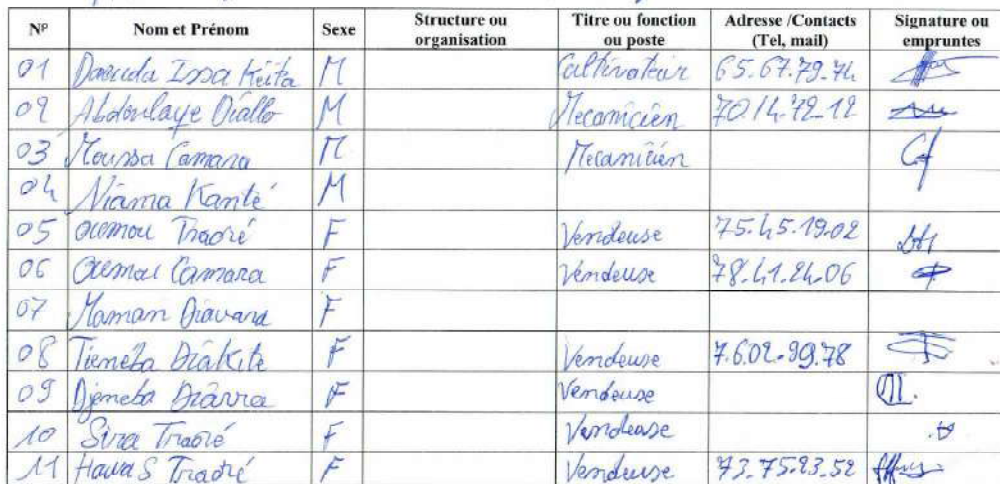 N° Nom et Prénom Sexe Structure ou organisation Titre ou fonction ou poste Adresse /Contacts (Tel, mail) Signature ou empruntes
01 Daouda Issa Keita M Cultivateur 65.67.79.74
02 Abdoulaye Diallo M Mecanicien 70.14.72.12
03 Moussa Camara M Mecanicien
04 Niama Kanté M
05 Oumou Traoré F Vendeuse 75.45.19.02
06 Oumou Camara F Vendeuse 78.41.24.06
07 Maman Diawara F
08 Tieneba Diakite F Vendeuse 7.6.02.99.78
09 Djeneba Diarra F Vendeuse
10 Sira Traoré F Vendeuse
11 Hawa S Traoré F Vendeuse 73.75.23.52